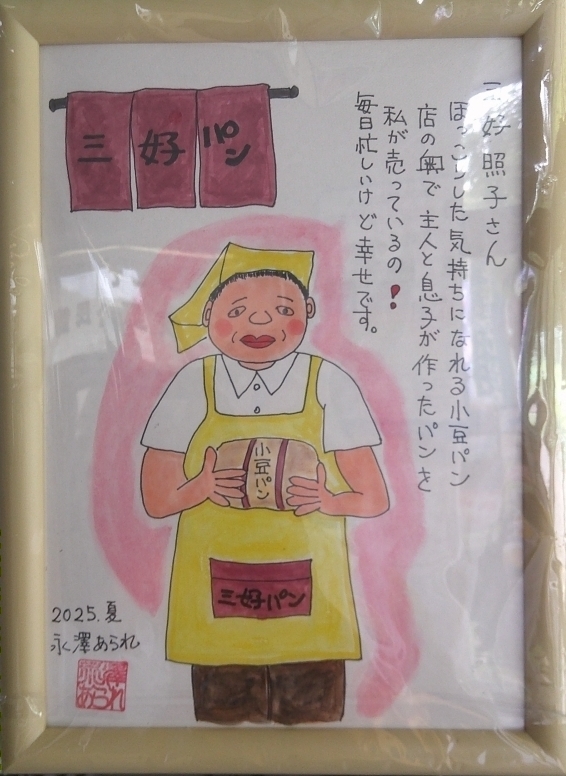 三好照子さん
ほっこりした気持ちになれる小豆パン
店の奥で主人と息子が作ったパンを
私が売っているの!
毎日忙しいけど幸せです。
三好パン
小豆パン
三好パン
2025.夏
永澤あられ
永澤
あられ